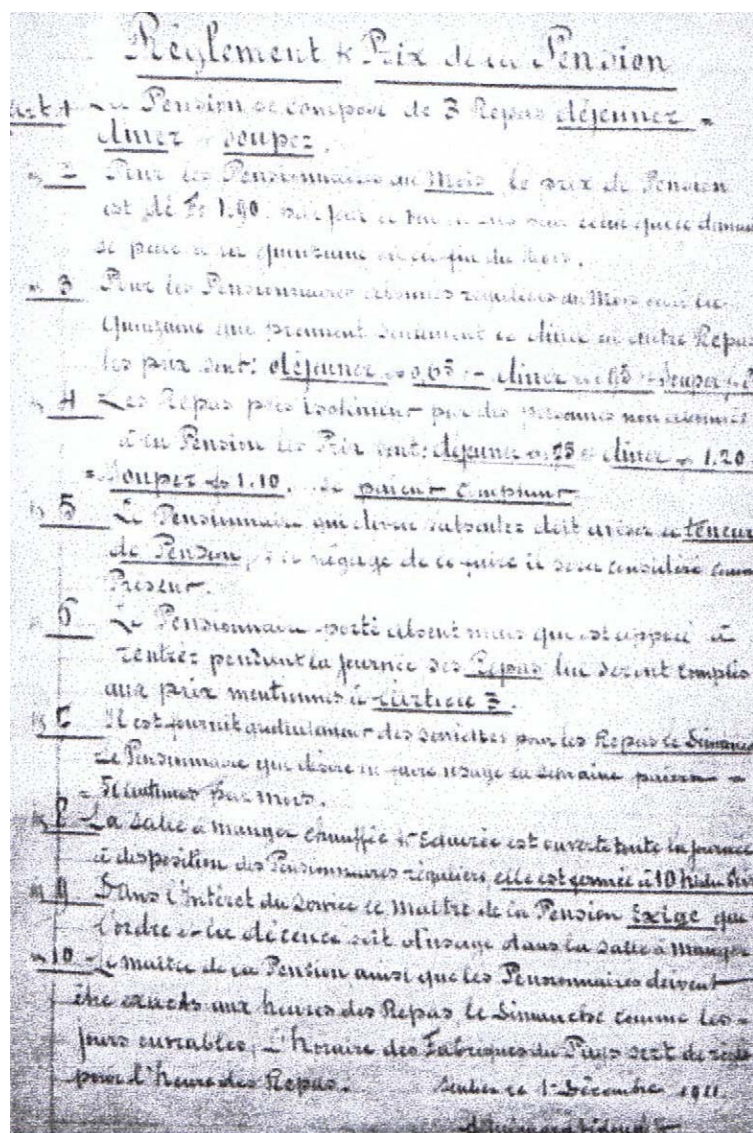 Réglement & Prix de la Pension
Art. 1 La Pension se compose de 3 Repas déjeunner =
diner & soupez.
2 Pour les Pensionnaires au Mois le prix de Pension
est de Fr 1.90 par jour
se paie à la quinzaine ou en fin du Mois.
3 Pour les Pensionnaires abonnés réguliers au Mois ou à la
Quinzaine que prennent seulement le diner un autre Repas
les prix sont: déjeuner 0,65 = diner 95 = Souper
4 Les Repas pris isolément par des personnes non abonnés
à la Pension les Prix sont: dejeuner 75 diner 1.20
= Souper 1.10. se paient comptant
5 Le Pensionnaire qui devra s'absentez doit aviser le teneur
de Pension, néglige de le faire il sera considéré comme
Présent.
6 Le Pensionnaire porté absent mais qui est appelé à
rentrez pendant la journée des Repas lui seront comptés
aux prix mentionnés à l'article 3.
Il est fournit gratuitement des serviettes pour les Repas le Dimanche
Le Pensionnaire qui désire en faire usage la semaine paiera =
centimes par mois.
8 La Salle à manger chauffée & Eclairée est ouverte toute la journée
à disposition des Pensionnaires réguliers, elle est fermée à 10 h. du Soir
Dans l'Intéret du Service le maître de la Pension Exige que
l'ordre et la décence soit d'usage dans la Salle à manger
10 Le maître de la Pension ainsi que les Pensionnaires doivent
être exacts aux heures des Repas, le Dimanche comme les
jours ouvrables, L'horaire des Fabriques du Pays sert de règle
pour l'heure des Repas. Sentier le 1er Décembre 1911.